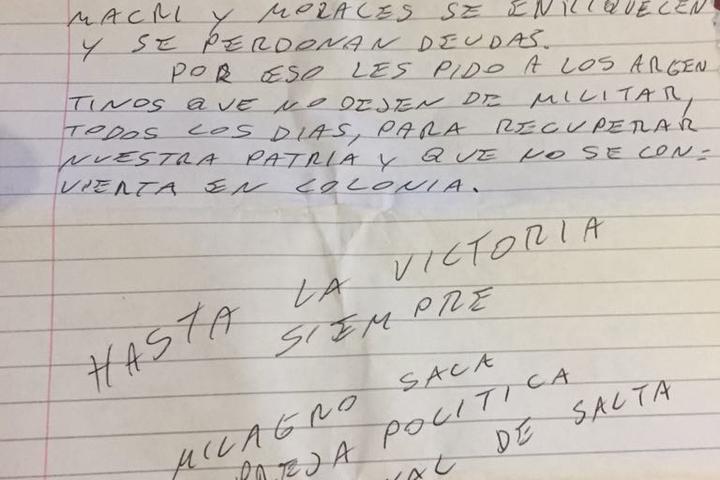 MACRI Y MORALES SE ENRIQUECEN
Y SE PERDONAN DEUDAS.
POR ESO LES PIDO A LOS ARGEN
TINOS QUE NO DEJEN DE MILITAR,
TODOS LOS DIAS, PARA RECUPERAR
NUESTRA PATRIA Y QUE NO SE CON-
VIERTA EN COLONIA.
HASTA LA VICTORIA
SIEMPRE
MILAGRO SALA
PRESA POLITICA
DE SALTA